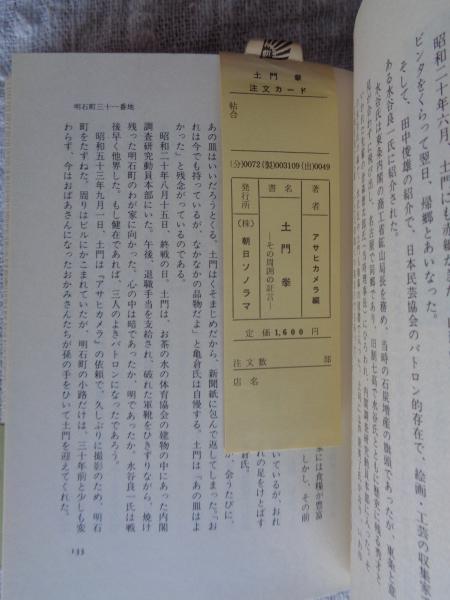 昭和二十年六月、土門にも赤紙が
ビンタをくらって翌日、帰郷とあいなった。
そして、田中俊雄の紹介で、日本民芸協会のパトロン的存在で、絵画・工芸の収集家
ある水谷良一氏に紹介された。
水谷氏は東条内閣の商工省鉱山局長を務め、当時の石炭増産の旗頭であったが、東条と意
土門拳
注文カード
帖合
(分)0072(製)003109(出)0049
著者 アサヒカメラ編
書名 土門拳
―その周囲の証言―
発行所 (株)朝日ソノラマ
定価1,600円
注文数 部
店名
明石町三十一番地
家には食糧が豊富
しかし、その前
ているが、おれ
れの足をけとばす
倉氏。
が、会うたびに、
あの皿はいいだろうとくる。土門はくそまじめだから、新聞紙に包んで返してしまった。「お
れは今でも持っているが、なかなかの品物だよ」と亀倉氏は自慢する。土門は「あの皿はよ
かった」と残念がっているのである。
昭和二十年八月十五日、終戦の日、土門は、お茶の水の体育協会の建物の中にあった内閣
調査研究動員本部にいた。午後、退職手当を支給され、破れた軍靴をひきずりながら、焼け
残った明石町のわが家に向かった。心の中は暗であったか、明であったか。水谷良一氏は戦
後早く他界した。もし健在であれば、三人のよきパトロンになったであろう。
昭和五十三年九月一日、土門は『アサヒカメラ』の依頼で、久しぶりに撮影のため、明石
町をたずねた。周りはビルにかこまれていたが、明石町の小路だけは、三十年前と少しも変
わらず、今はおばあさんになったおかみさんたちが孫の手をひいて土門を迎えてくれた。
133